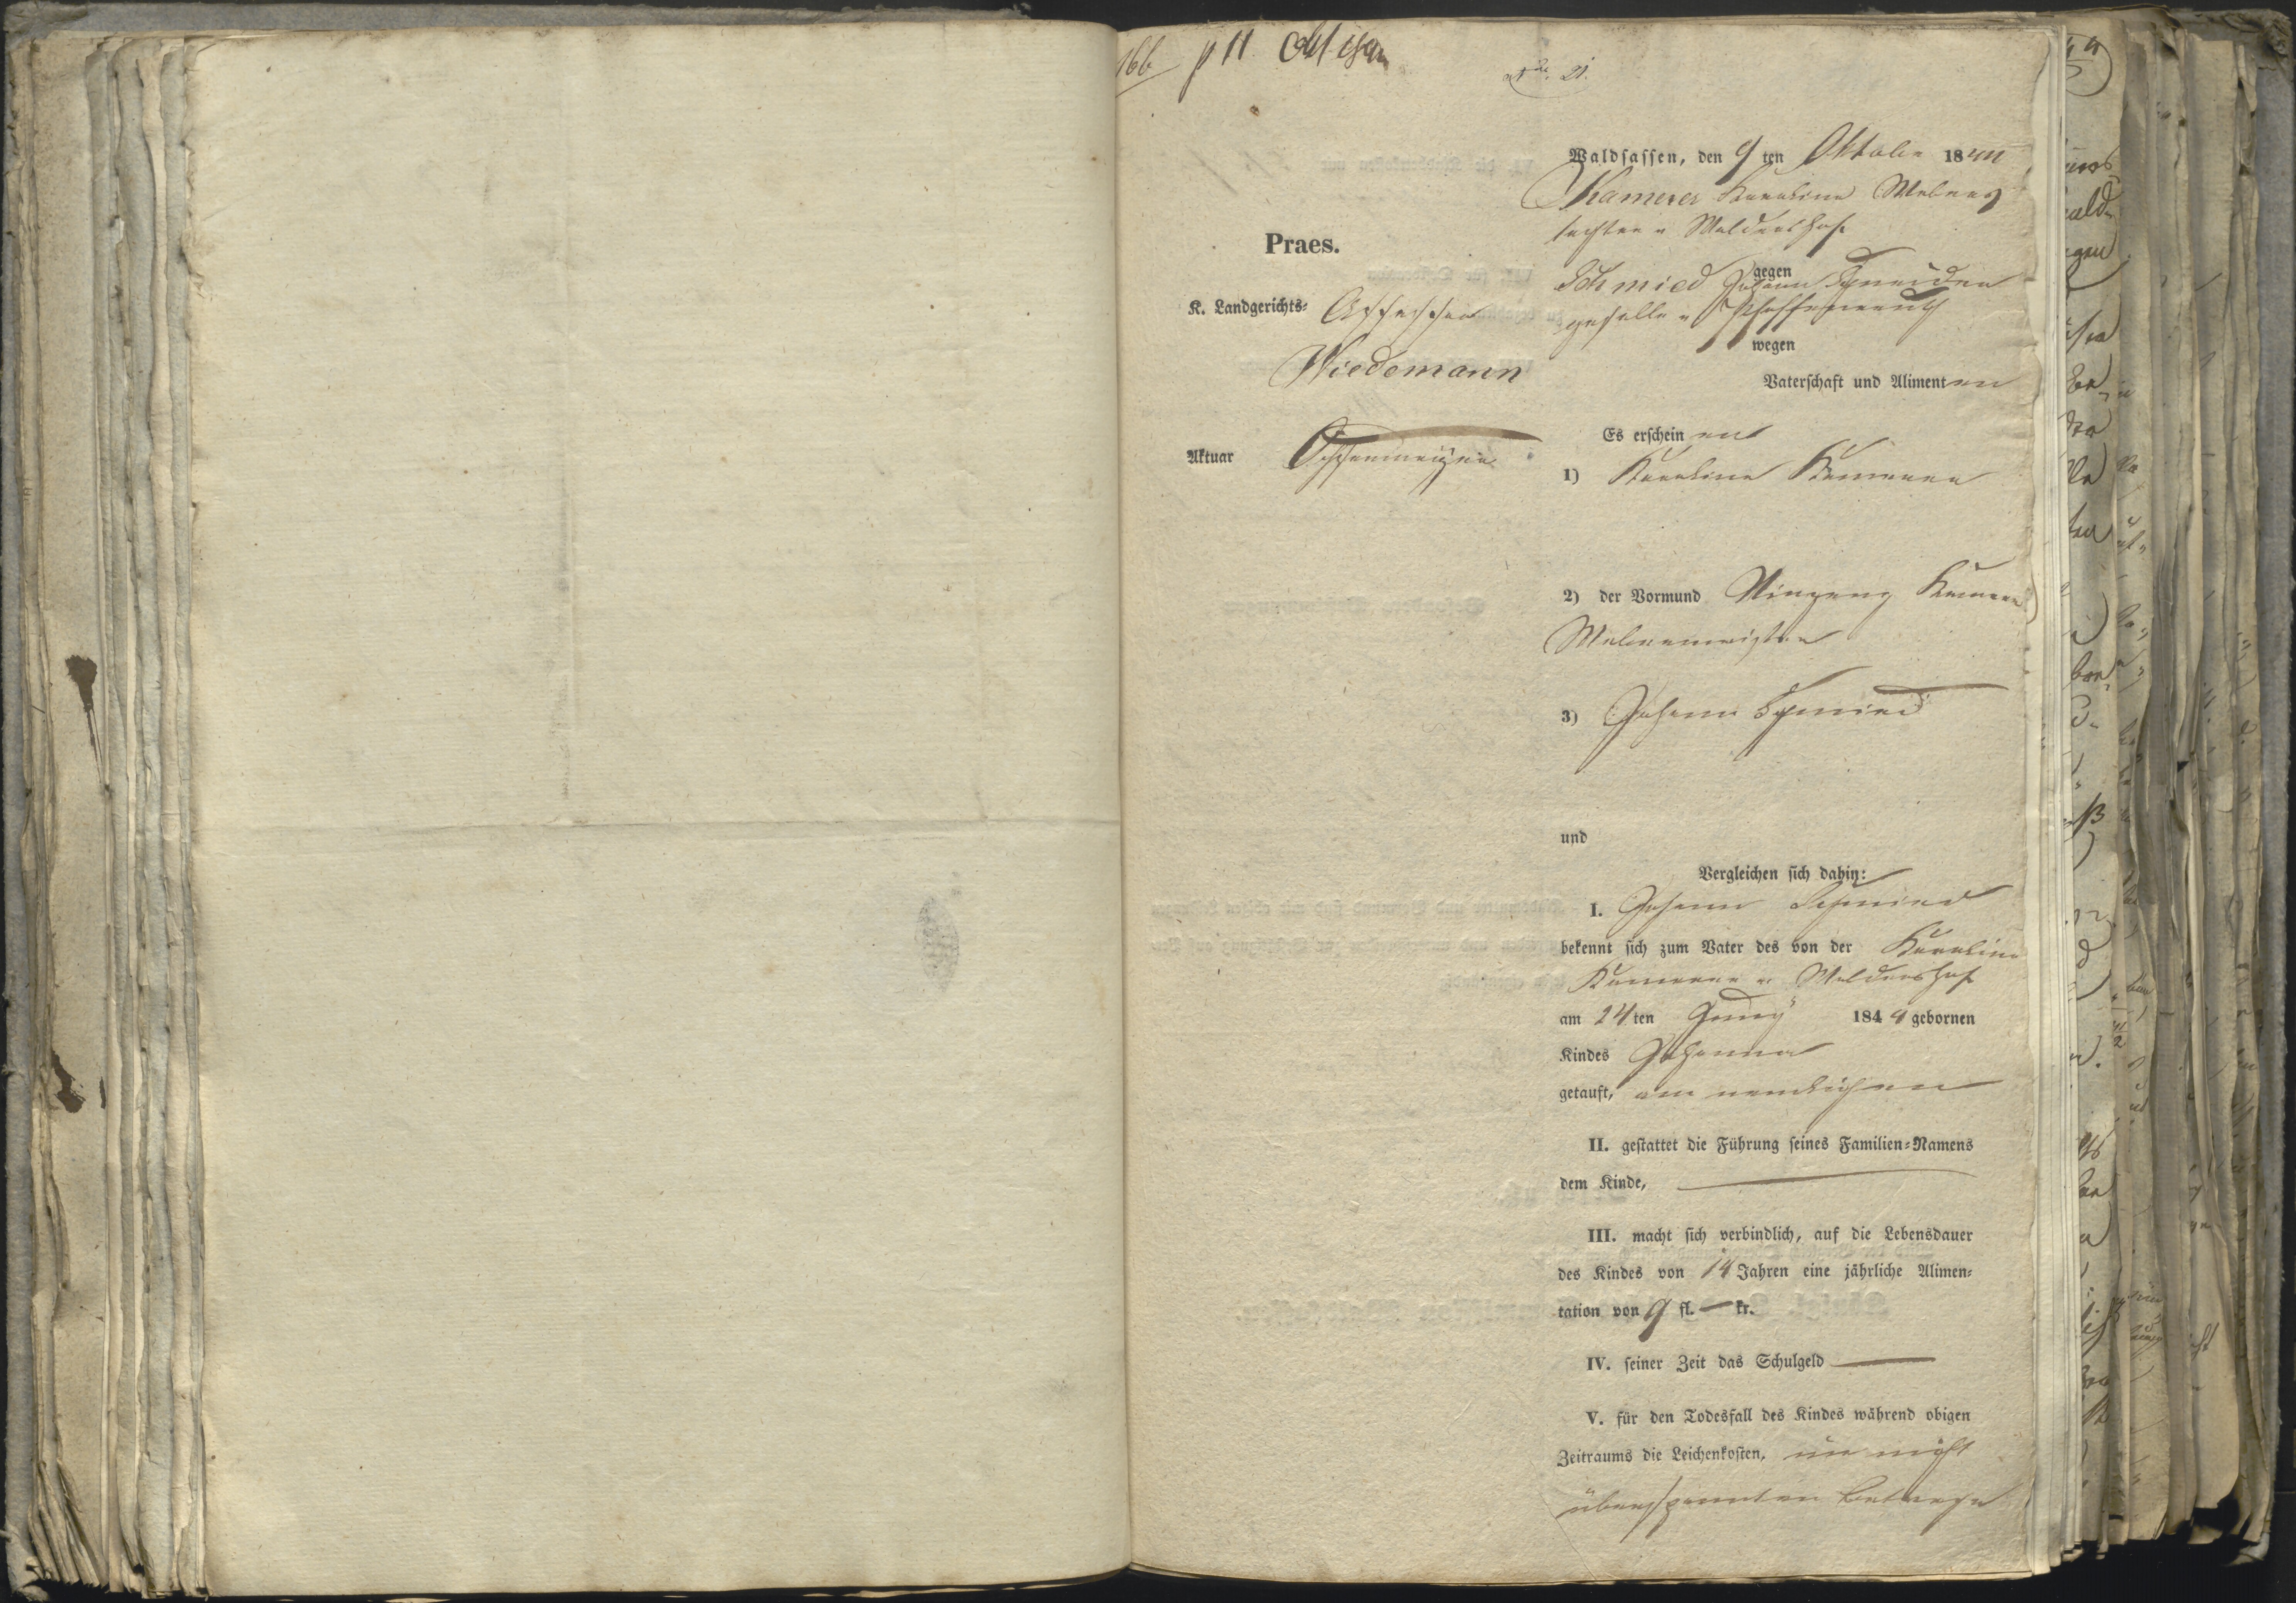 166 p 11.
Waldsassen, den 9 ten Oktober 1844
Kamerer Karolina Webers
tochter v Waldershof
gegen
Schmied Johann Schneider
geselle v Pfaffenreuth
wegen
Vaterschaft und Alimenten
Praes.
K. Landgerichts- Assessor
Wiedemann
Aktuar
Es erscheinen
1) Karolina Kamerer
2) der Vormund Vinzenz Kamerer
Webermeister
3) Johann Schmied
und
Vergleichen sich dahin:
I. Johann Schmied
bekennt sich zum Vater des von der Karolina
Kamerer v Waldershof
am 24 ten 1844 gebornen
Kindes Johanna
getauft, am nemlichen
II. gestattet die Führung seines Familien-Namens
dem Kinde,
III. macht sich verbindlich, auf die Lebensdauer
des Kindes von 14 Jahren eine jährliche Alimen-
tation von 9 fl. — kr.
IV. seiner Zeit das Schulgeld
V. für den Todesfall des Kindes während obigen
Zeitraums die Leichenkosten, im nicht
überspannten Betrage